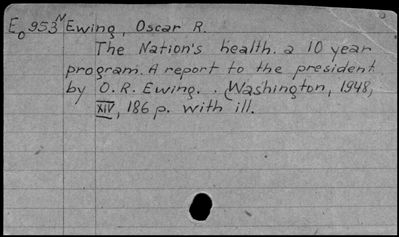 E₀953ᴺ Ewing, Oscar R.
The Nation's health. a 10 year
program. A report to the president
by O. R. Ewing. . (Washington, 1948,
XIV, 186 p. with ill.